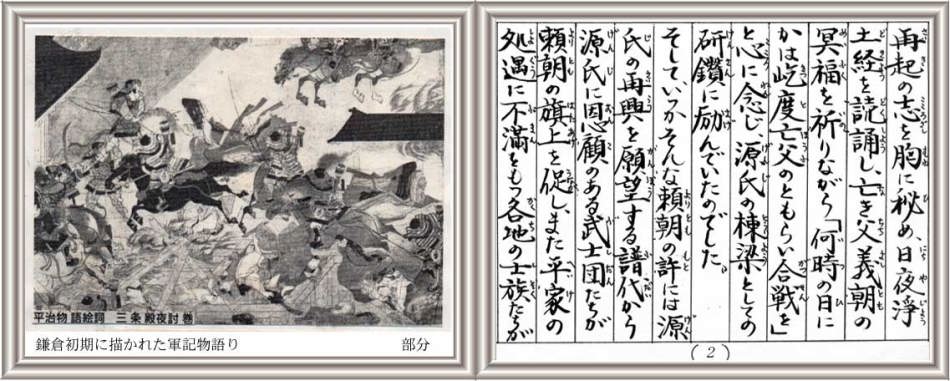 平治物語絵詞　三条殿夜討巻
鎌倉初期に描かれた軍記物語り　部分
再起の志を胸に秘め、日夜浄
土経を読誦し、亡き父義朝の
冥福を祈りながら「何時の日に
かは屹度亡父のともらい合戦を」
と心に念じ、源氏の棟梁としての
研鑽に励んでいたのでした。
そしていつかそんな頼朝の許には源
氏の再興を願望する譜代から
源氏に恩顧のある武士団たちが
頼朝の旗上を促し、また平家の
処遇に不満をもつ各地の士族たちが
(2)